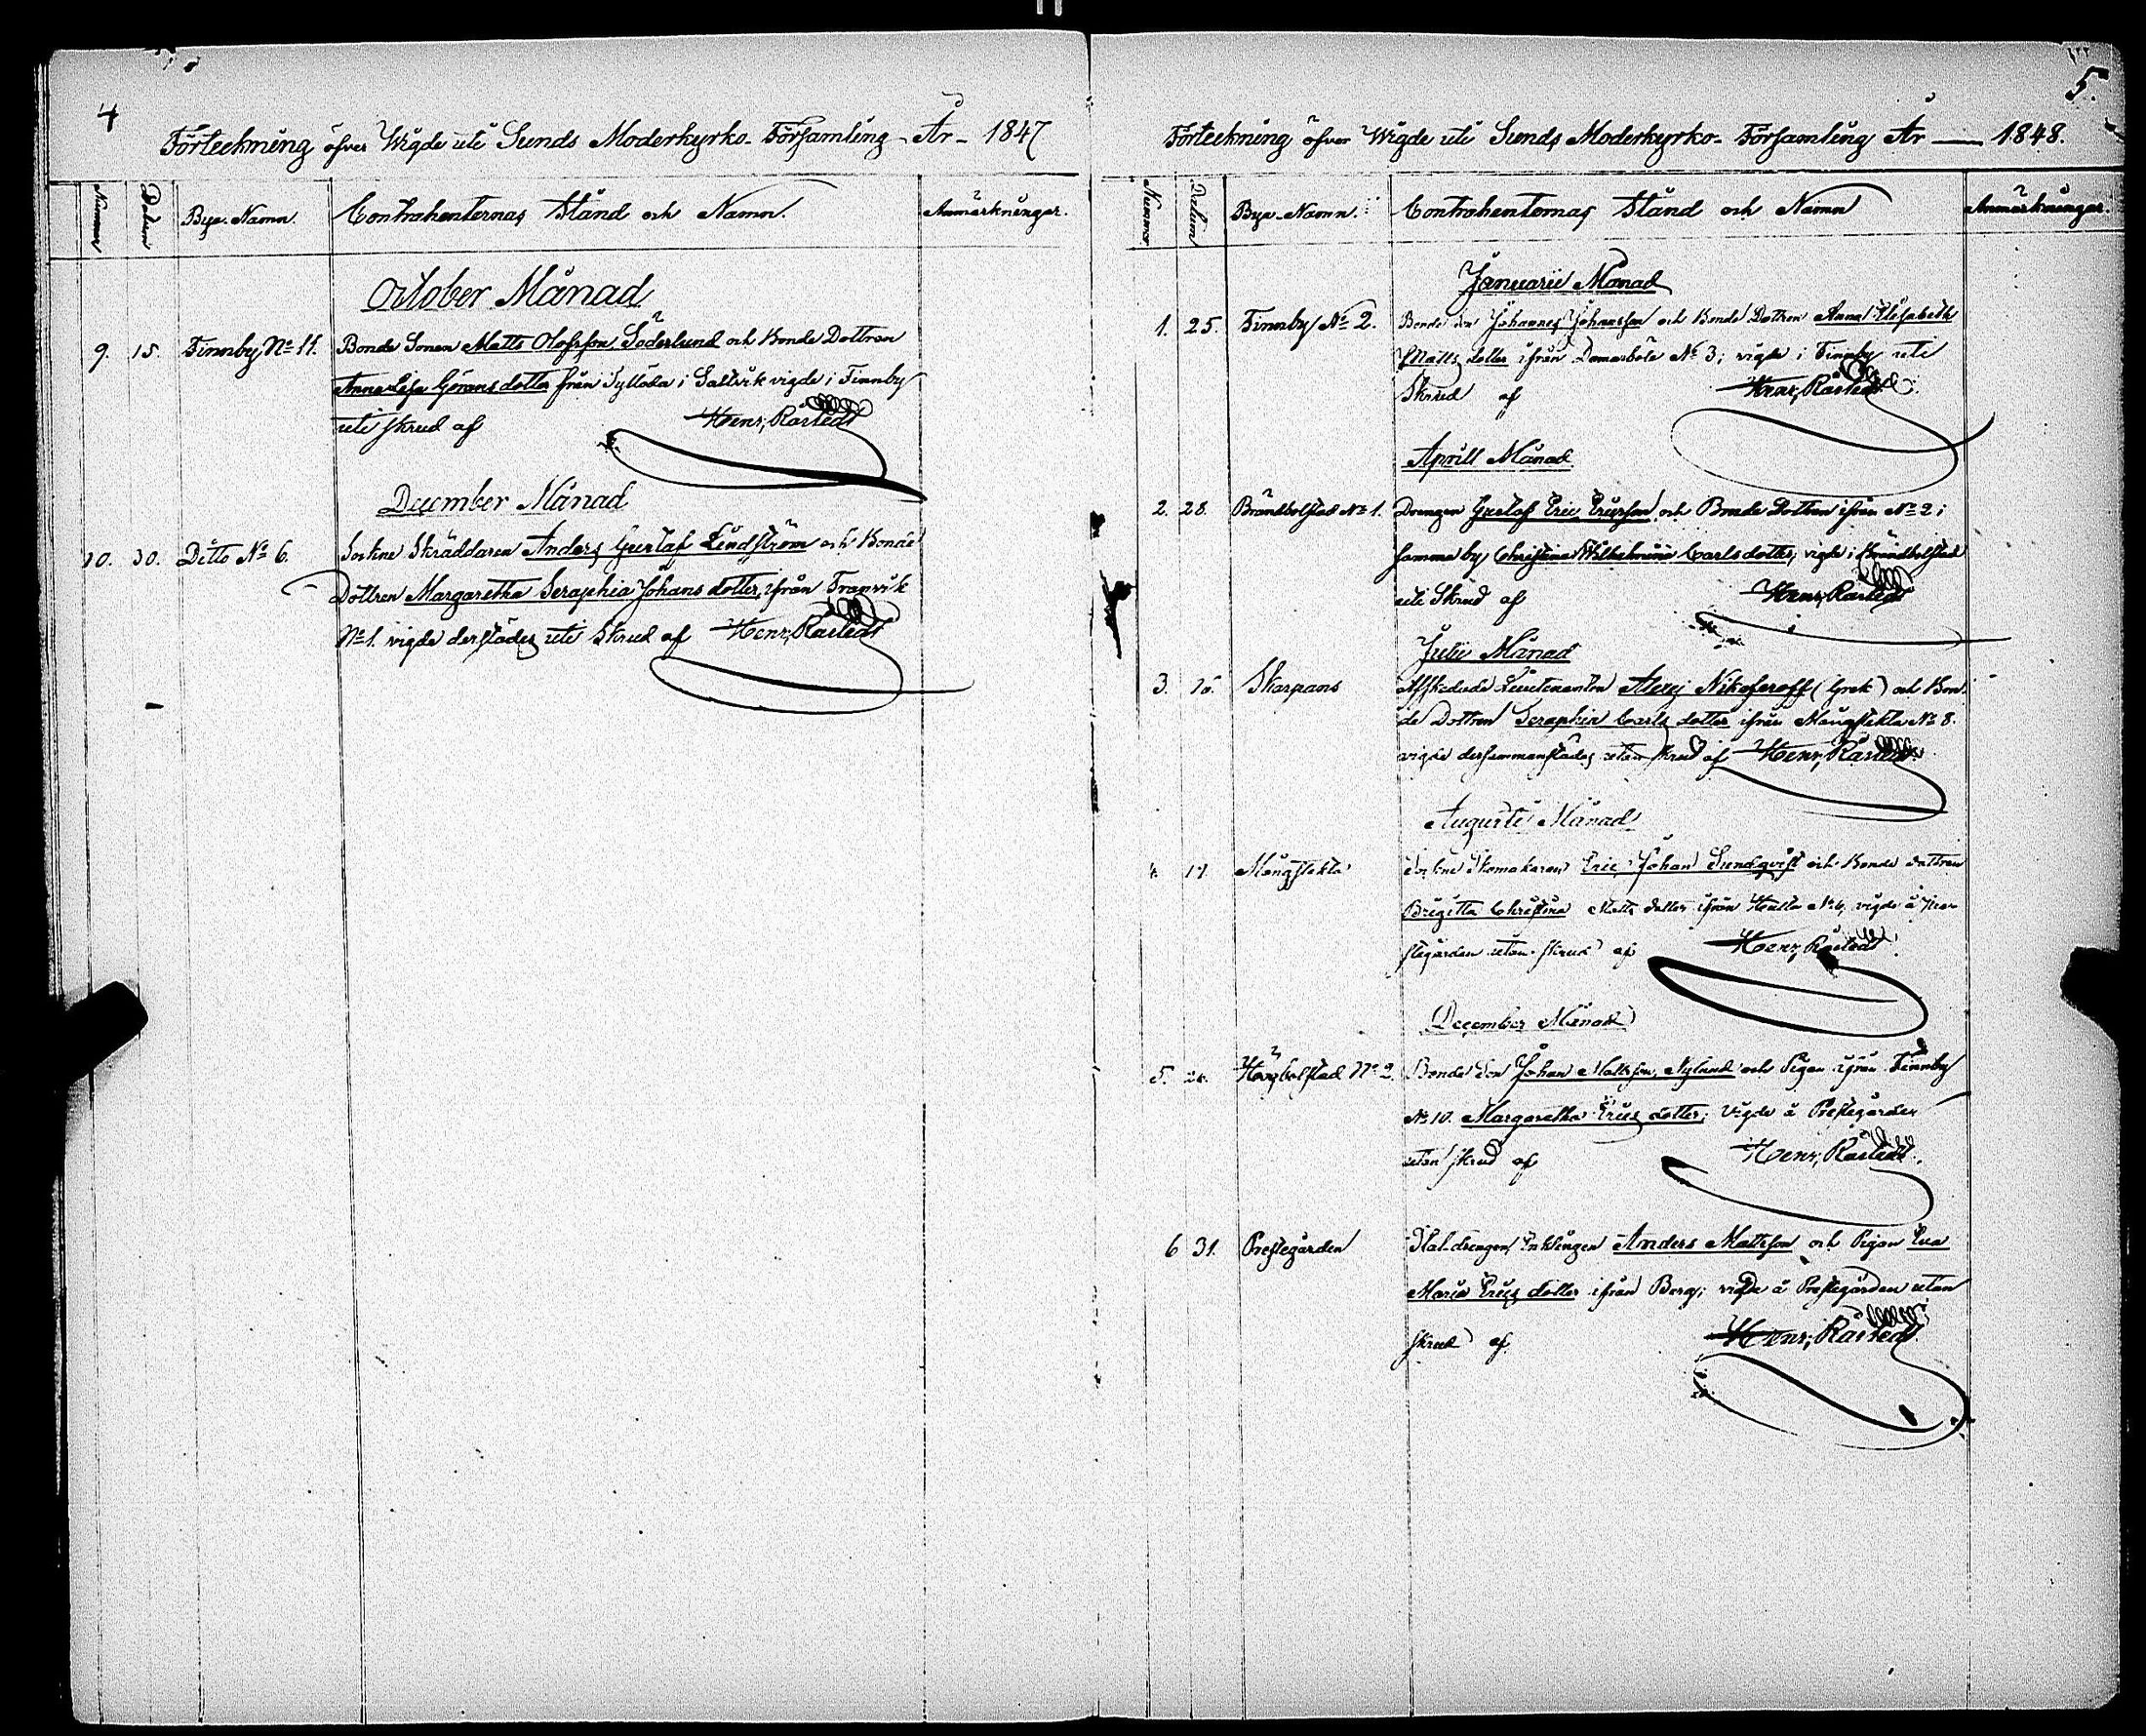 4
Förteckning öfver Wigde uti Sunds Moderkyrko-Församling År - 1847
Numer
Datum
Bye-Namn.
Contrahenternas Stånd och Namn.
Anmärkningar.
October Månad
9. 15. Finnby No 11. Bonde Sonen Matts Olofsson Söderlund och Bonde Dottren
Anna Lisa Görans dotter från Syllöda i Saltvik vigde i Finnby
uti skrud af Henr; Råstedt
December Månad
10. 30. Ditto No 6. Sockne Skräddaren Anders Gustaf Lindström och Bonde
Dottren Margaretha Seraphia Johans dotter, ifrån Tranvik
No 1. vigde derstädes uti Skrud af Henr; Råstedt
5.
Förteckning öfver Wigde uti Sunds Moderkyrko-Församling År 1848.
Numer
Datum
Bye-Namn.
Contrahenternas Stånd och Namn
Anmärkningar.
Januarii Månad
1. 25. Finnby No 2. Bonde Son Johannes Johansson och Bonde Dottren Anna Elisabeth
Matts dotter ifrån Domarböle No 3; vigde i Finnby uti
Skrud af Henr; Råstedt
Aprill Månad
2. 28. Brändbolstad No 1. Drengen Gustaf Eric Ericsson och Bonde Dottren ifrån No 2 i
samma by Christina Wilhelmina Carls dotter; vigde i Brändbolstad
uti Skrud af Henr; Råstedt
Julii Månad
3. 15. Skarpans Afskedade Lieutenanten Alexej Nikoferoff (Grek) och Bon-
de Dottren Seraphia Carls dotter ifrån Mångstekta No 8.
vigde dersammanstädes utan skrud af Henr; Råstedt
Augusti Månad
4. 17. Mångstekta Sockne Skomakaren Eric Johan Sundqvist och Bonde dottren
Brigitta Christina Matts dotter ifrån No 6, vigde å Pre-
stegården utan skrud af Henr; Råstedt
December Månad
5. 26. Högbolstad No 2. Bonde Son Johan Mattsson Nylund och Pigan ifrån Finnby
No 10. Margaretha Erics dotter; Vigde å Prestegården
utan skrud af Henr; Råstedt.
6 31. Prestegården Enklingen Anders Mattsson och Pigan Eva
Maria Erics dotter ifrån Berg; vigde å Prestegården utan
skrud af Henr; Råstedt